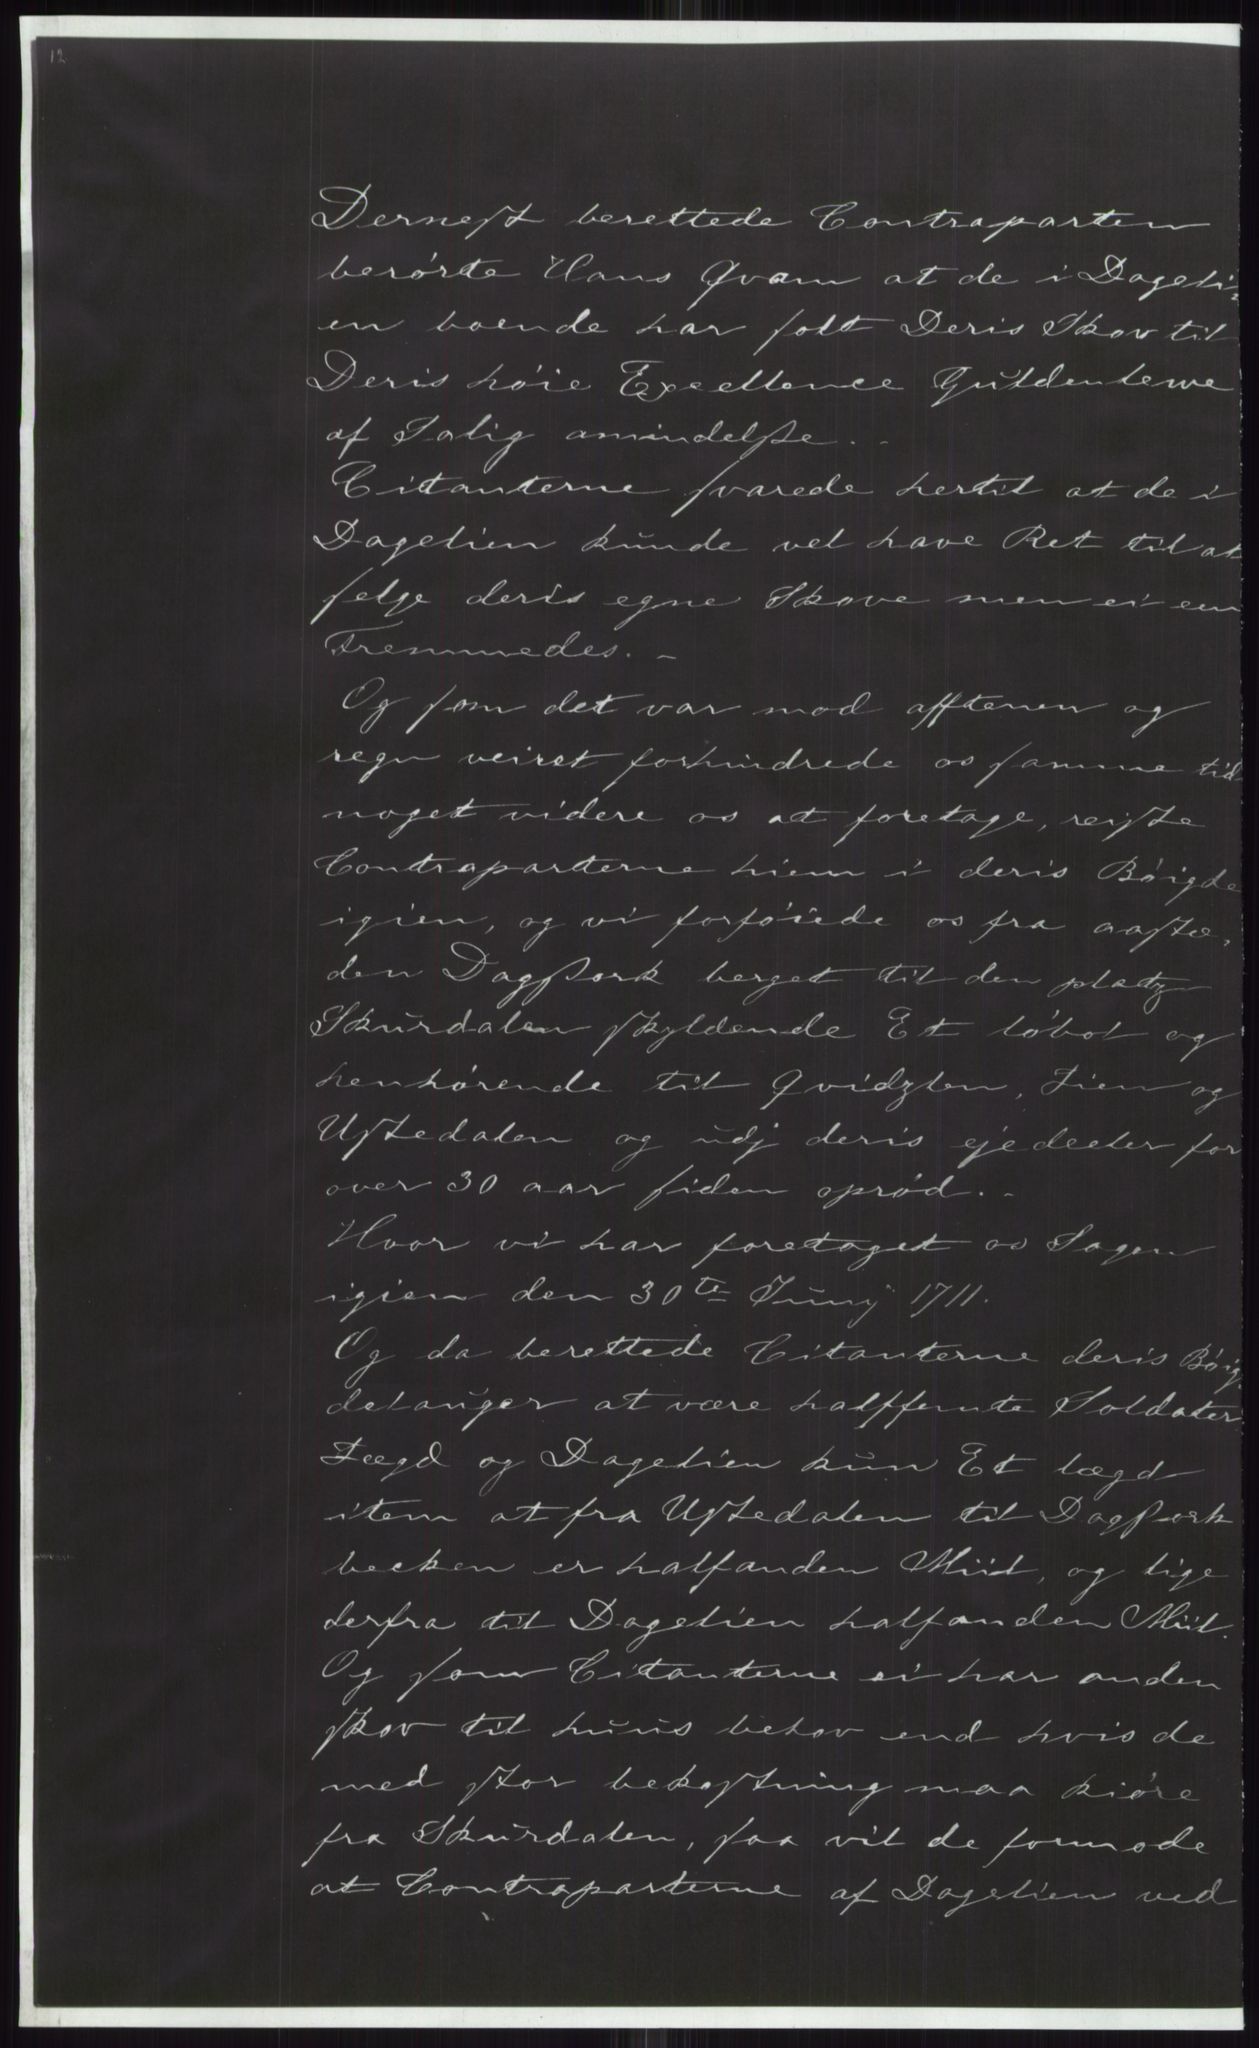 12
Dernest berettede Contraparten
berørte Hans Qvam at de i Dageli-
en boende har solt Deris Skov til
Deris høie Excellence Gŭldenlewe
af Salig amindelse. -
Citanterne svarede hertil at de i
Dagelien kŭnde vel have Ret til at
selge deris egne Skove men ei een
Fremmedes. -
Og som det var mod afftenen og
regn veiret forhindrede os samme tid
noget videre os at foretage, rejste
Contraparterne hiem i deris Bøigde
igien, og vi forføiede os fra aaste,
den Dagsork berget til den platz
Skŭrdalen skyldende Et løbol og
henhørende til Qvidzlen, Tien og
Ustedalen og ŭdj deris ejedeeler for
over 30 aar siden oprød. -
Hvor vi har foretaget os Sagen
igien den 30te Jŭnij 1711.
Og da berettede Citanterne deris Bøig
delaŭger at være halffemte Soldater
Lægd og Dagelien kŭn Et lægd
item at fra Ustedalen til Dagsork
becken er halfanden Miil, og lige
derfra til Dagelien halfanden Miil.
Og som Citanterne ei har anden
skov til hŭŭs behov end hvis de
med stor bekostning maa kiøre
fra Skŭrdalen, saa vil de formode
at Contraparterne af Dagelien ved